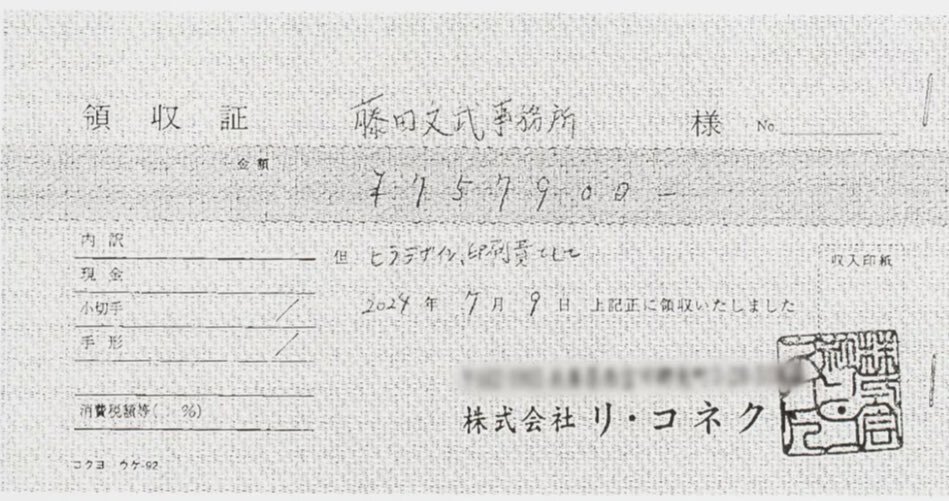 領収証 藤田文武事務所 様 No.
金額
¥757900-
内訳
但 ビラデザイン、印刷費として
収入印紙
現金
小切手
2024年7月9日 上記正に領収いたしました
手形
消費税額等( %)
株式会社 リ・コネク
コクヨ ウケ-92